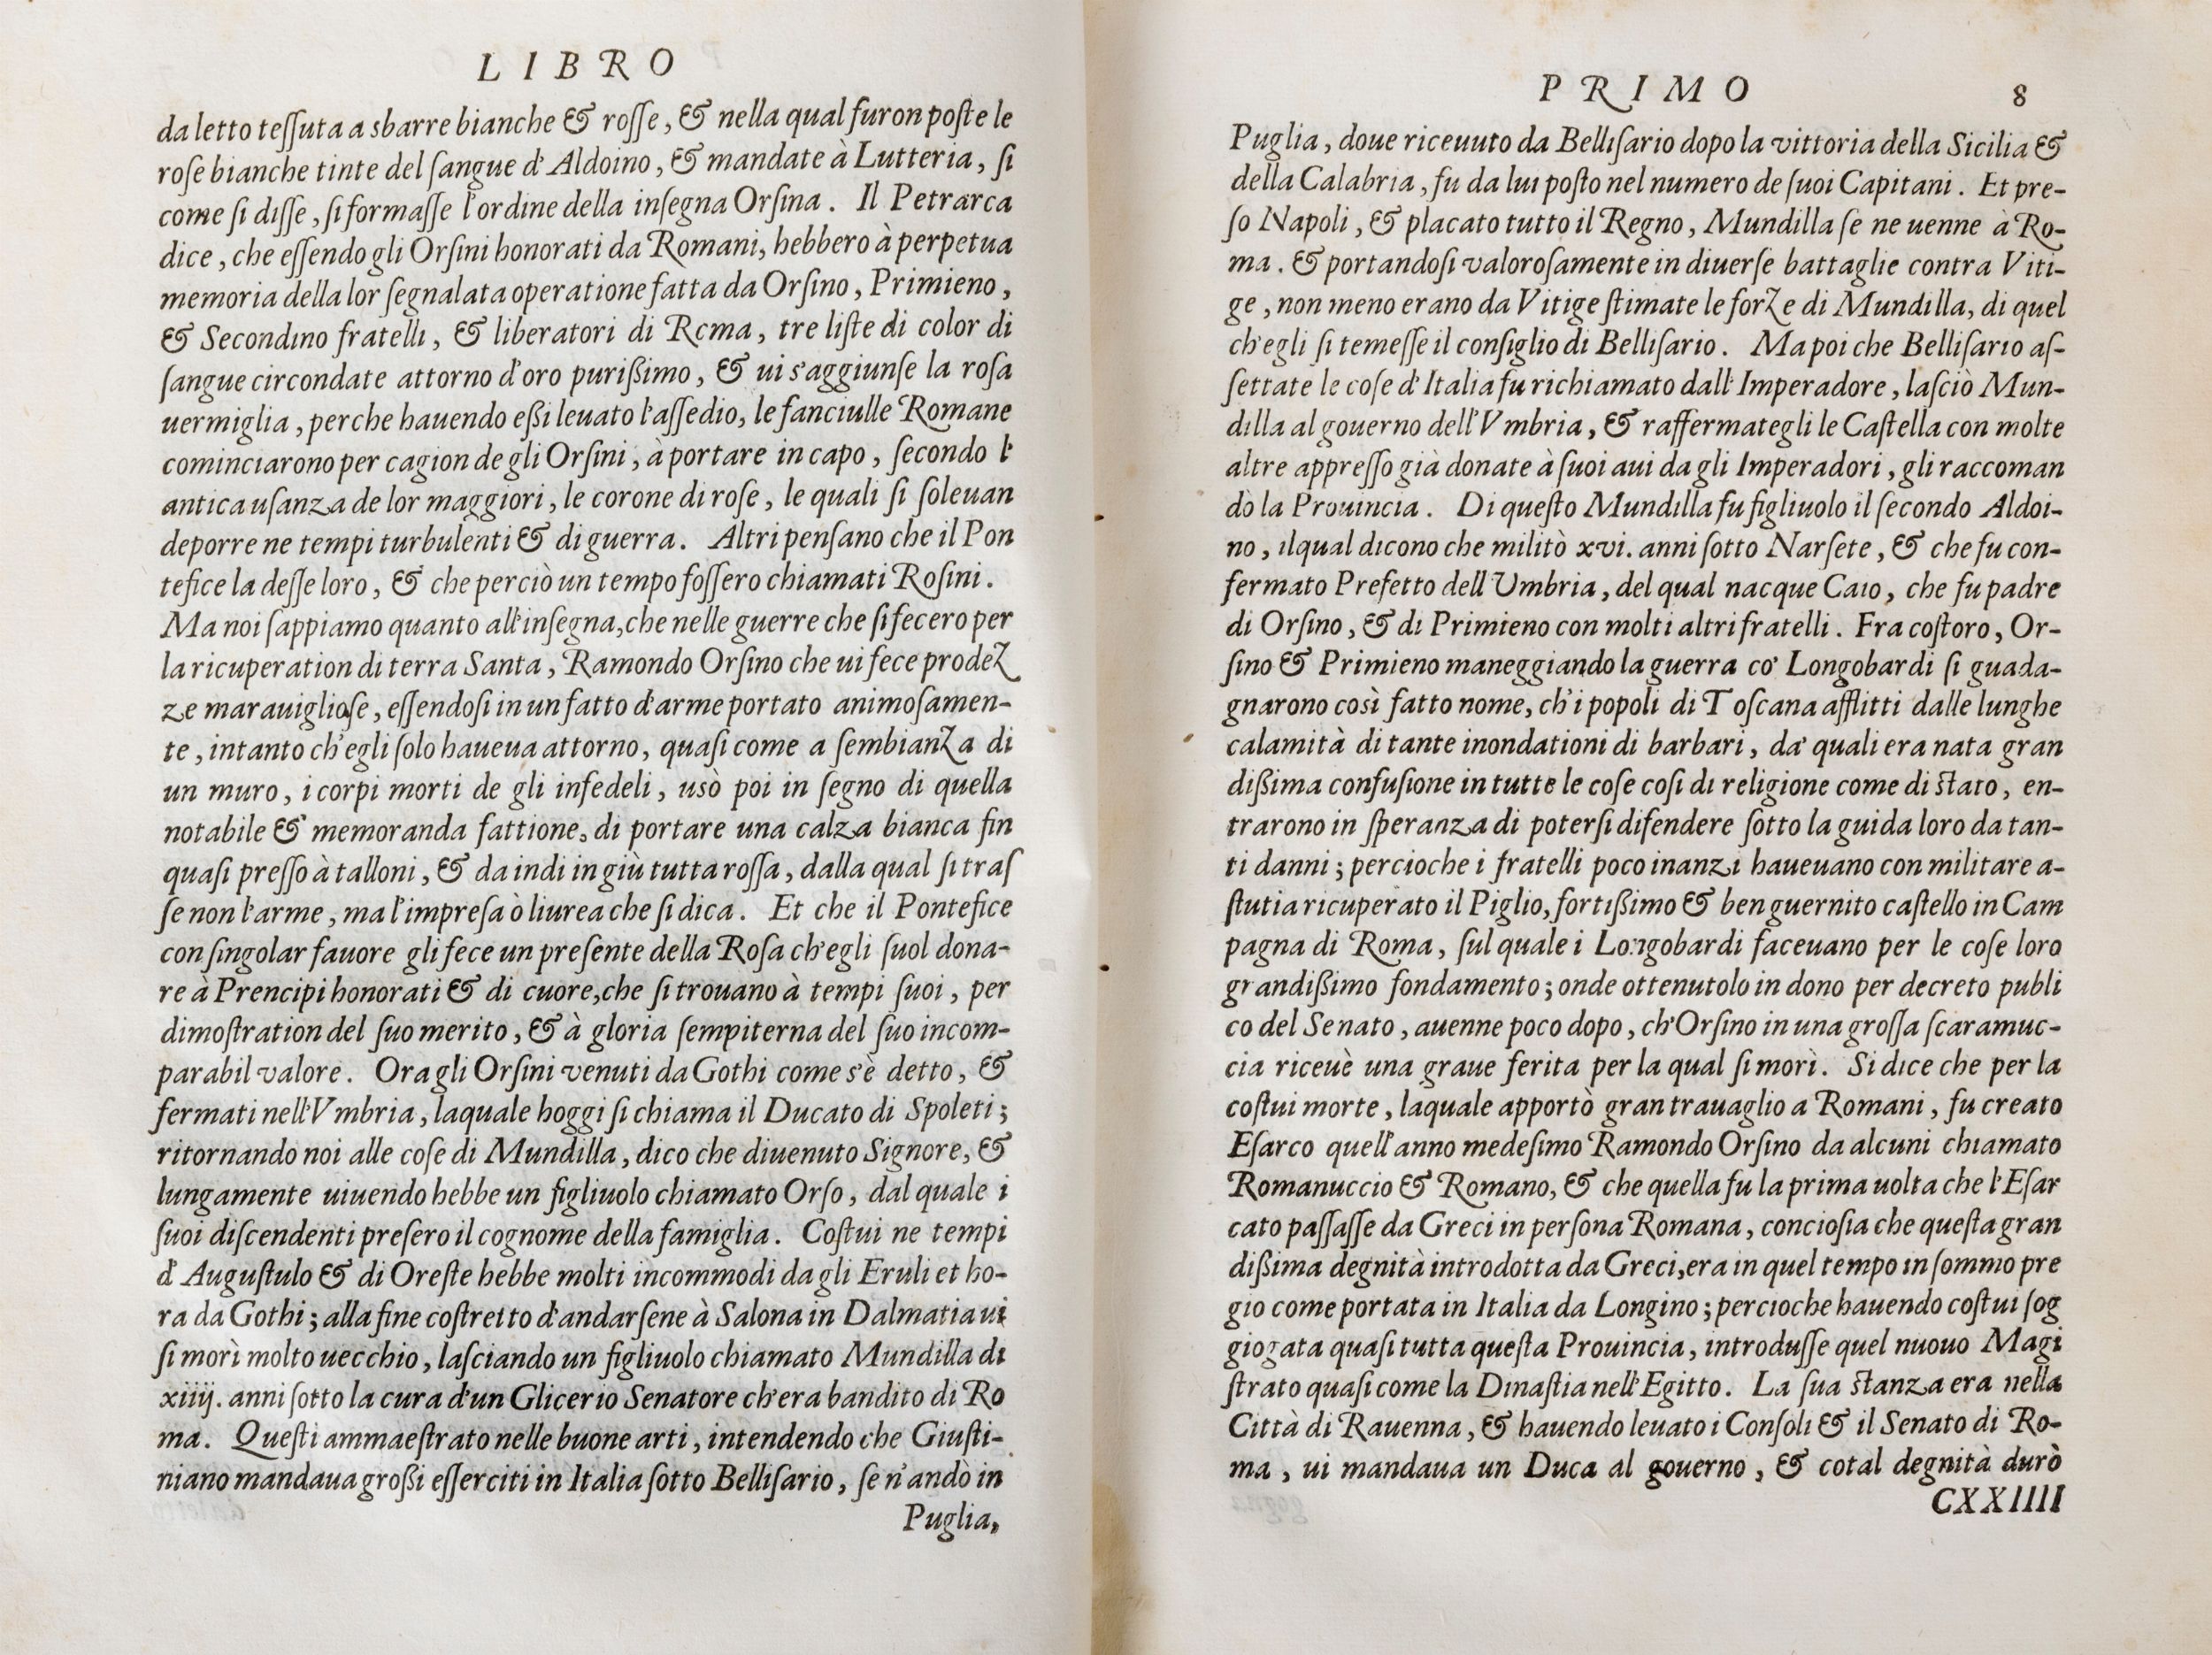 LIBRO
da letto teſſuta a sbarre bianche & roſſe, & nella qual furon poſte le
roſe bianche tinte del ſangue d'Aldoino, & mandate à Lutteria, ſi
come ſi diſſe, ſi formaſſe l'ordine della inſegna Orſina. Il Petrarca
dice, che eſſendo gli Orſini honorati da Romani, hebbero à perpetua
memoria della lor ſegnalata operatione fatta da Orſino, Primieno,
& Secondino fratelli, & liberatori di Roma, tre liſte di color di
ſangue circondate attorno d'oro purißimo, & ui s'aggiunſe la roſa
uermiglia, perche hauendo eßi leuato l'aſſedio, le fanciulle Romane
cominciarono per cagion de gli Orſini, à portare in capo, ſecondo l'
antica uſanza de lor maggiori, le corone di roſe, le quali ſi ſoleuan
deporre ne tempi turbulenti & di guerra. Altri penſano che il Pon
tefice la deſſe loro, & che perciò un tempo foſſero chiamati Roſini.
Ma noi ſappiamo quanto all'inſegna, che nelle guerre che ſi fecero per
la ricuperation di terra Santa, Ramondo Orſino che ui fece prodez
ze marauiglioſe, eſſendoſi in un fatto d'arme portato animoſamen-
te, intanto ch'egli ſolo haueua attorno, quaſi come a ſembianza di
un muro, i corpi morti de gli infedeli, usò poi in ſegno di quella
notabile & memoranda fattione, di portare una calza bianca fin
quaſi preſſo à talloni, & da indi in giù tutta roſſa, dalla qual ſi traſ
ſe non l'arme, ma l'impreſa ò liurea che ſi dica. Et che il Pontefice
con ſingolar fauore gli fece un preſente della Roſa ch'egli ſuol dona-
re à Prencipi honorati & di cuore, che ſi trouano à tempi ſuoi, per
dimoſtration del ſuo merito, & à gloria ſempiterna del ſuo incom-
parabil valore. Ora gli Orſini venuti da Gothi come s'è detto, &
fermati nell'Vmbria, laquale hoggi ſi chiama il Ducato di Spoleti;
ritornando noi alle coſe di Mundilla, dico che diuenuto Signore, &
lungamente uiuendo hebbe un figliuolo chiamato Orſo, dal quale i
ſuoi diſcendenti preſero il cognome della famiglia. Coſtui ne tempi
d'Auguſtulo & di Oreſte hebbe molti incommodi da gli Eruli et ho-
ra da Gothi; alla fine coſtretto d'andarſene à Salona in Dalmatia ui
ſi morì molto uecchio, laſciando un figliuolo chiamato Mundilla di
xiiij. anni ſotto la cura d'un Glicerio Senatore ch'era bandito di Ro
ma. Queſti ammaeſtrato nelle buone arti, intendendo che Giuſti-
niano mandaua großi eſſerciti in Italia ſotto Belliſario, ſe n'andò in
Puglia,
PRIMO 8
Puglia, doue riceuuto da Belliſario dopo la vittoria della Sicilia &
della Calabria, fu da lui poſto nel numero de ſuoi Capitani. Et pre-
ſo Napoli, & placato tutto il Regno, Mundilla ſe ne uenne à Ro-
ma. & portandoſi valoroſamente in diuerſe battaglie contra Viti-
ge, non meno erano da Vitige ſtimate le forze di Mundilla, di quel
ch'egli ſi temeſſe il conſiglio di Belliſario. Ma poi che Belliſario aſ-
ſettate le coſe d'Italia fu richiamato dall'Imperadore, laſciò Mun-
dilla al gouerno dell'Vmbria, & raffermategli le Caſtella con molte
altre appreſſo già donate à ſuoi aui da gli Imperadori, gli raccoman
dò la Prouincia. Di queſto Mundilla fu figliuolo il ſecondo Aldoi-
no, ilqual dicono che militò xvi. anni ſotto Narſete, & che fu con-
fermato Prefetto dell'Umbria, del qual nacque Caio, che fu padre
di Orſino, & di Primieno con molti altri fratelli. Fra coſtoro, Or-
ſino & Primieno maneggiando la guerra co' Longobardi ſi guada-
gnarono così fatto nome, ch'i popoli di Toſcana afflitti dalle lunghe
calamità di tante inondationi di barbari, da' quali era nata gran
dißima confuſione in tutte le coſe coſi di religione come di ſtato, en-
trarono in ſperanza di poterſi difendere ſotto la guida loro da tan-
ti danni; percioche i fratelli poco inanzi haueuano con militare a-
ſtutia ricuperato il Piglio, fortißimo & ben guernito caſtello in Cam
pagna di Roma, ſul quale i Longobardi faceuano per le coſe loro
grandißimo fondamento; onde ottenutolo in dono per decreto publi
co del Senato, auenne poco dopo, ch'Orſino in una groſſa ſcaramuc-
cia riceuè una graue ferita per la qual ſi morì. Si dice che per la
coſtui morte, laquale apportò gran trauaglio a Romani, fu creato
Eſarco quell'anno medeſimo Ramondo Orſino da alcuni chiamato
Romanuccio & Romano, & che quella fu la prima uolta che l'Eſar
cato paſſaſſe da Greci in perſona Romana, concioſia che queſta gran
dißima degnità introdotta da Greci, era in quel tempo in ſommo pre
gio come portata in Italia da Longino; percioche hauendo coſtui ſog
giogata quaſi tutta queſta Prouincia, introduſſe quel nuouo Magi
ſtrato quaſi come la Dinaſtia nell'Egitto. La ſua ſtanza era nella
Città di Rauenna, & hauendo leuato i Conſoli & il Senato di Ro-
ma, ui mandaua un Duca al gouerno, & cotal degnità durò
CXXIIII